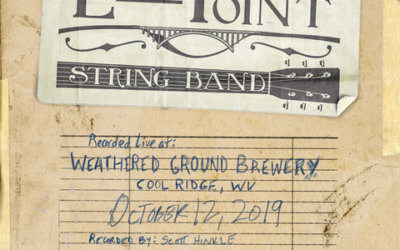 POINT
STRING BAND
Recorded Live at:
WEATHERED GROUND BREWERY
COOL RIDGE, WV
OCTOBER 12, 2019
RECORDED BY: SCOTT HINKLE